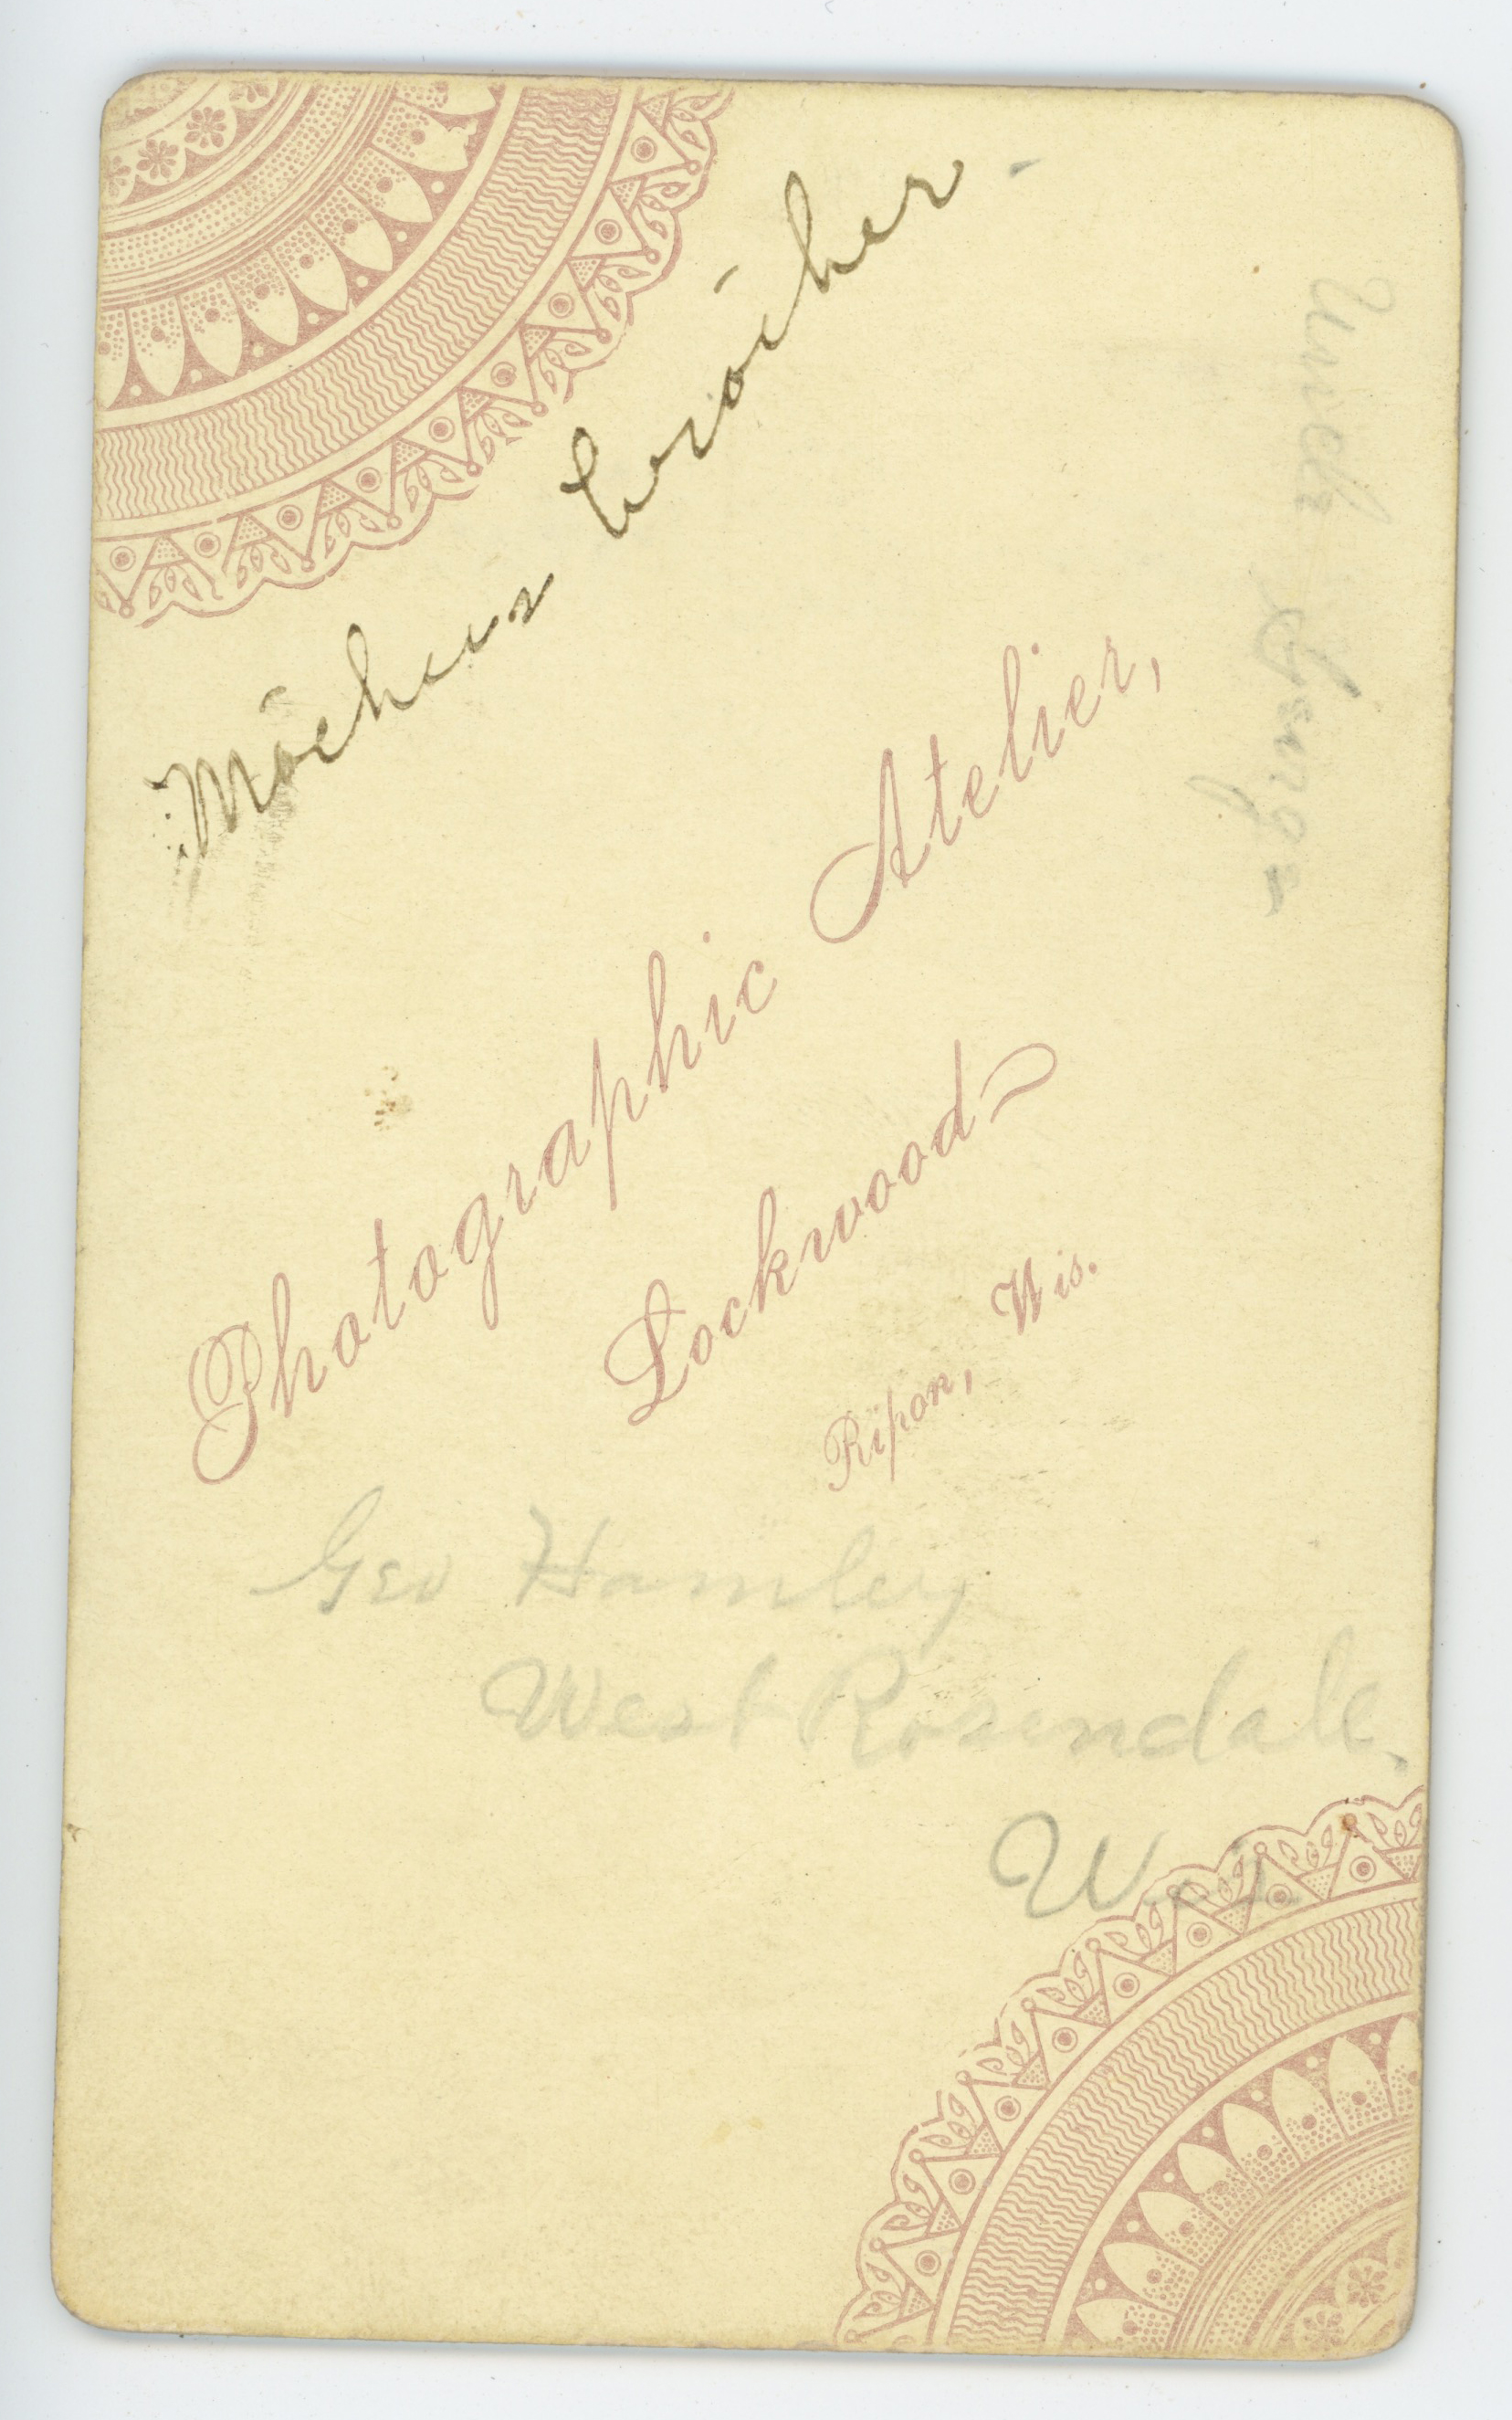 Mother's brother -
Uncle George
Photographic Atelier,
Lockwood
Ripon, Wis.
Geo Hamley
West Rosendale.
Wis